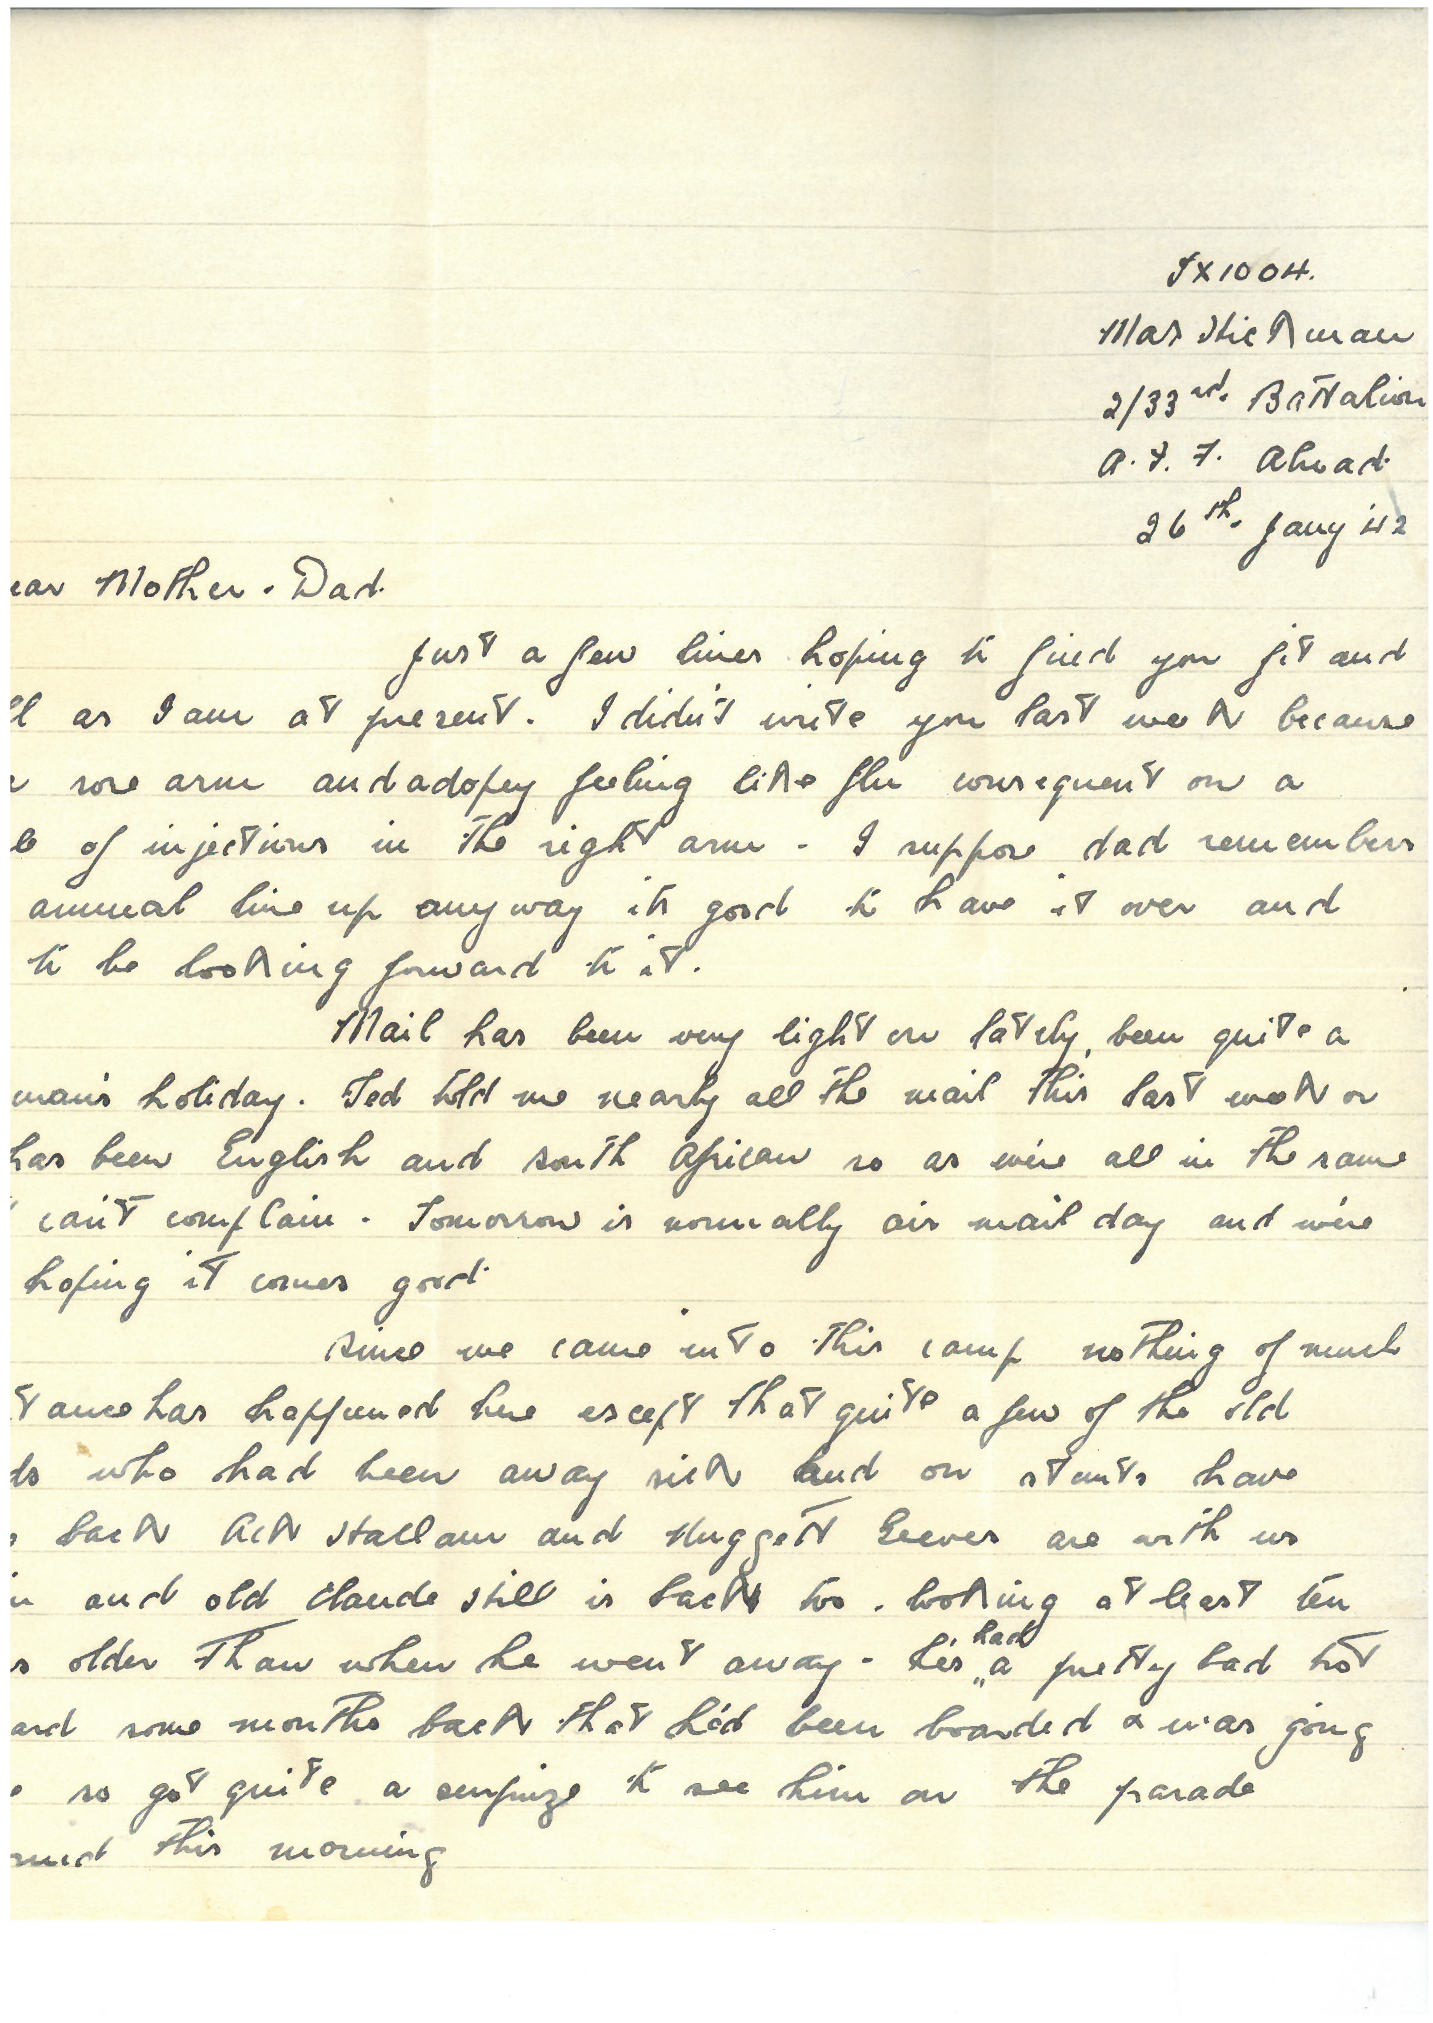 TX1004.
Max Hickman
2/33rd. Battalion
A.I.F. Abroad
26th. Jany '42
ear Mother . Dad.
Just a few lines hoping to find you fit and
ll as I am at present. I didn't write you last week because
sore arm and a dopey feeling like flu consequent on a
le of injections in the right arm. I suppose dad remembers
annual line up anyway its good to have it over and
to be looking forward to it.
Mail has been very light on lately, been quite a
man's holiday. Ted told me nearly all the mail this last week or
has been English and South African so as we're all in the same
can't complain. Tomorrow is normally air mail day and we're
hoping it comes good.
Since we came into this camp nothing of much
tance has happened here except that quite a few of the old
ds who had been away sick and on stunts have
back Ack Hallam and Nuggett Geeves are with us
and old Claude Still is back too. looking at least ten
s older than when he went away - he's had a pretty bad trot
ard some months back that he'd been boarded & was going
so got quite a surprize to see him on the parade
und this morning